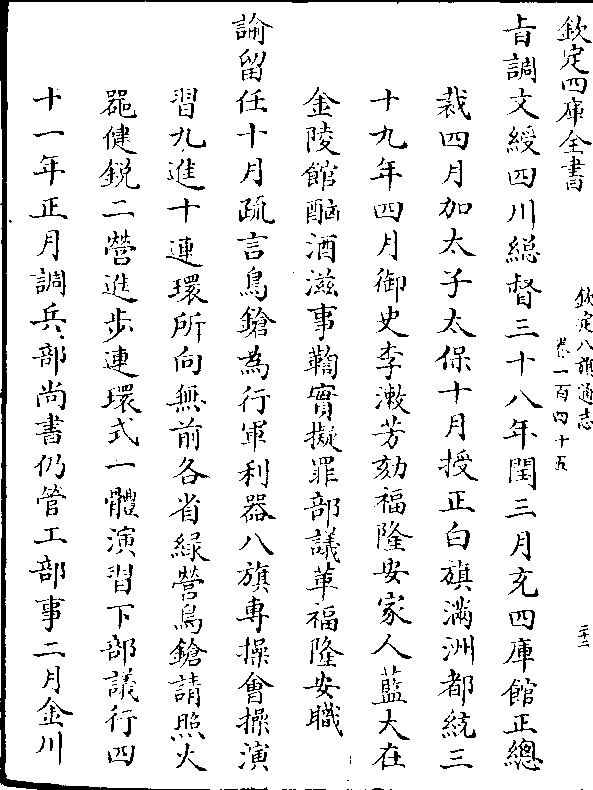 欽定四庫全書
欽定八旗通志
卷一百四十五
二十二
旨調文綬四川總督三十八年閏三月充四庫館正總
裁四月加太子太保十月授正白旗滿洲都統三
十九年四月御史李漱芳劾福隆安家人藍大在
金陵館酗酒滋事鞫實擬罪部議革福隆安職
諭留任十月疏言鳥鎗為行軍利器八旗専操會操演
習九進十連環所向無前各省緑營鳥鎗請照火
噐健鋭二營進步連環式一體演習下部議行四
十一年正月調兵部尚書仍管工部事二月金川